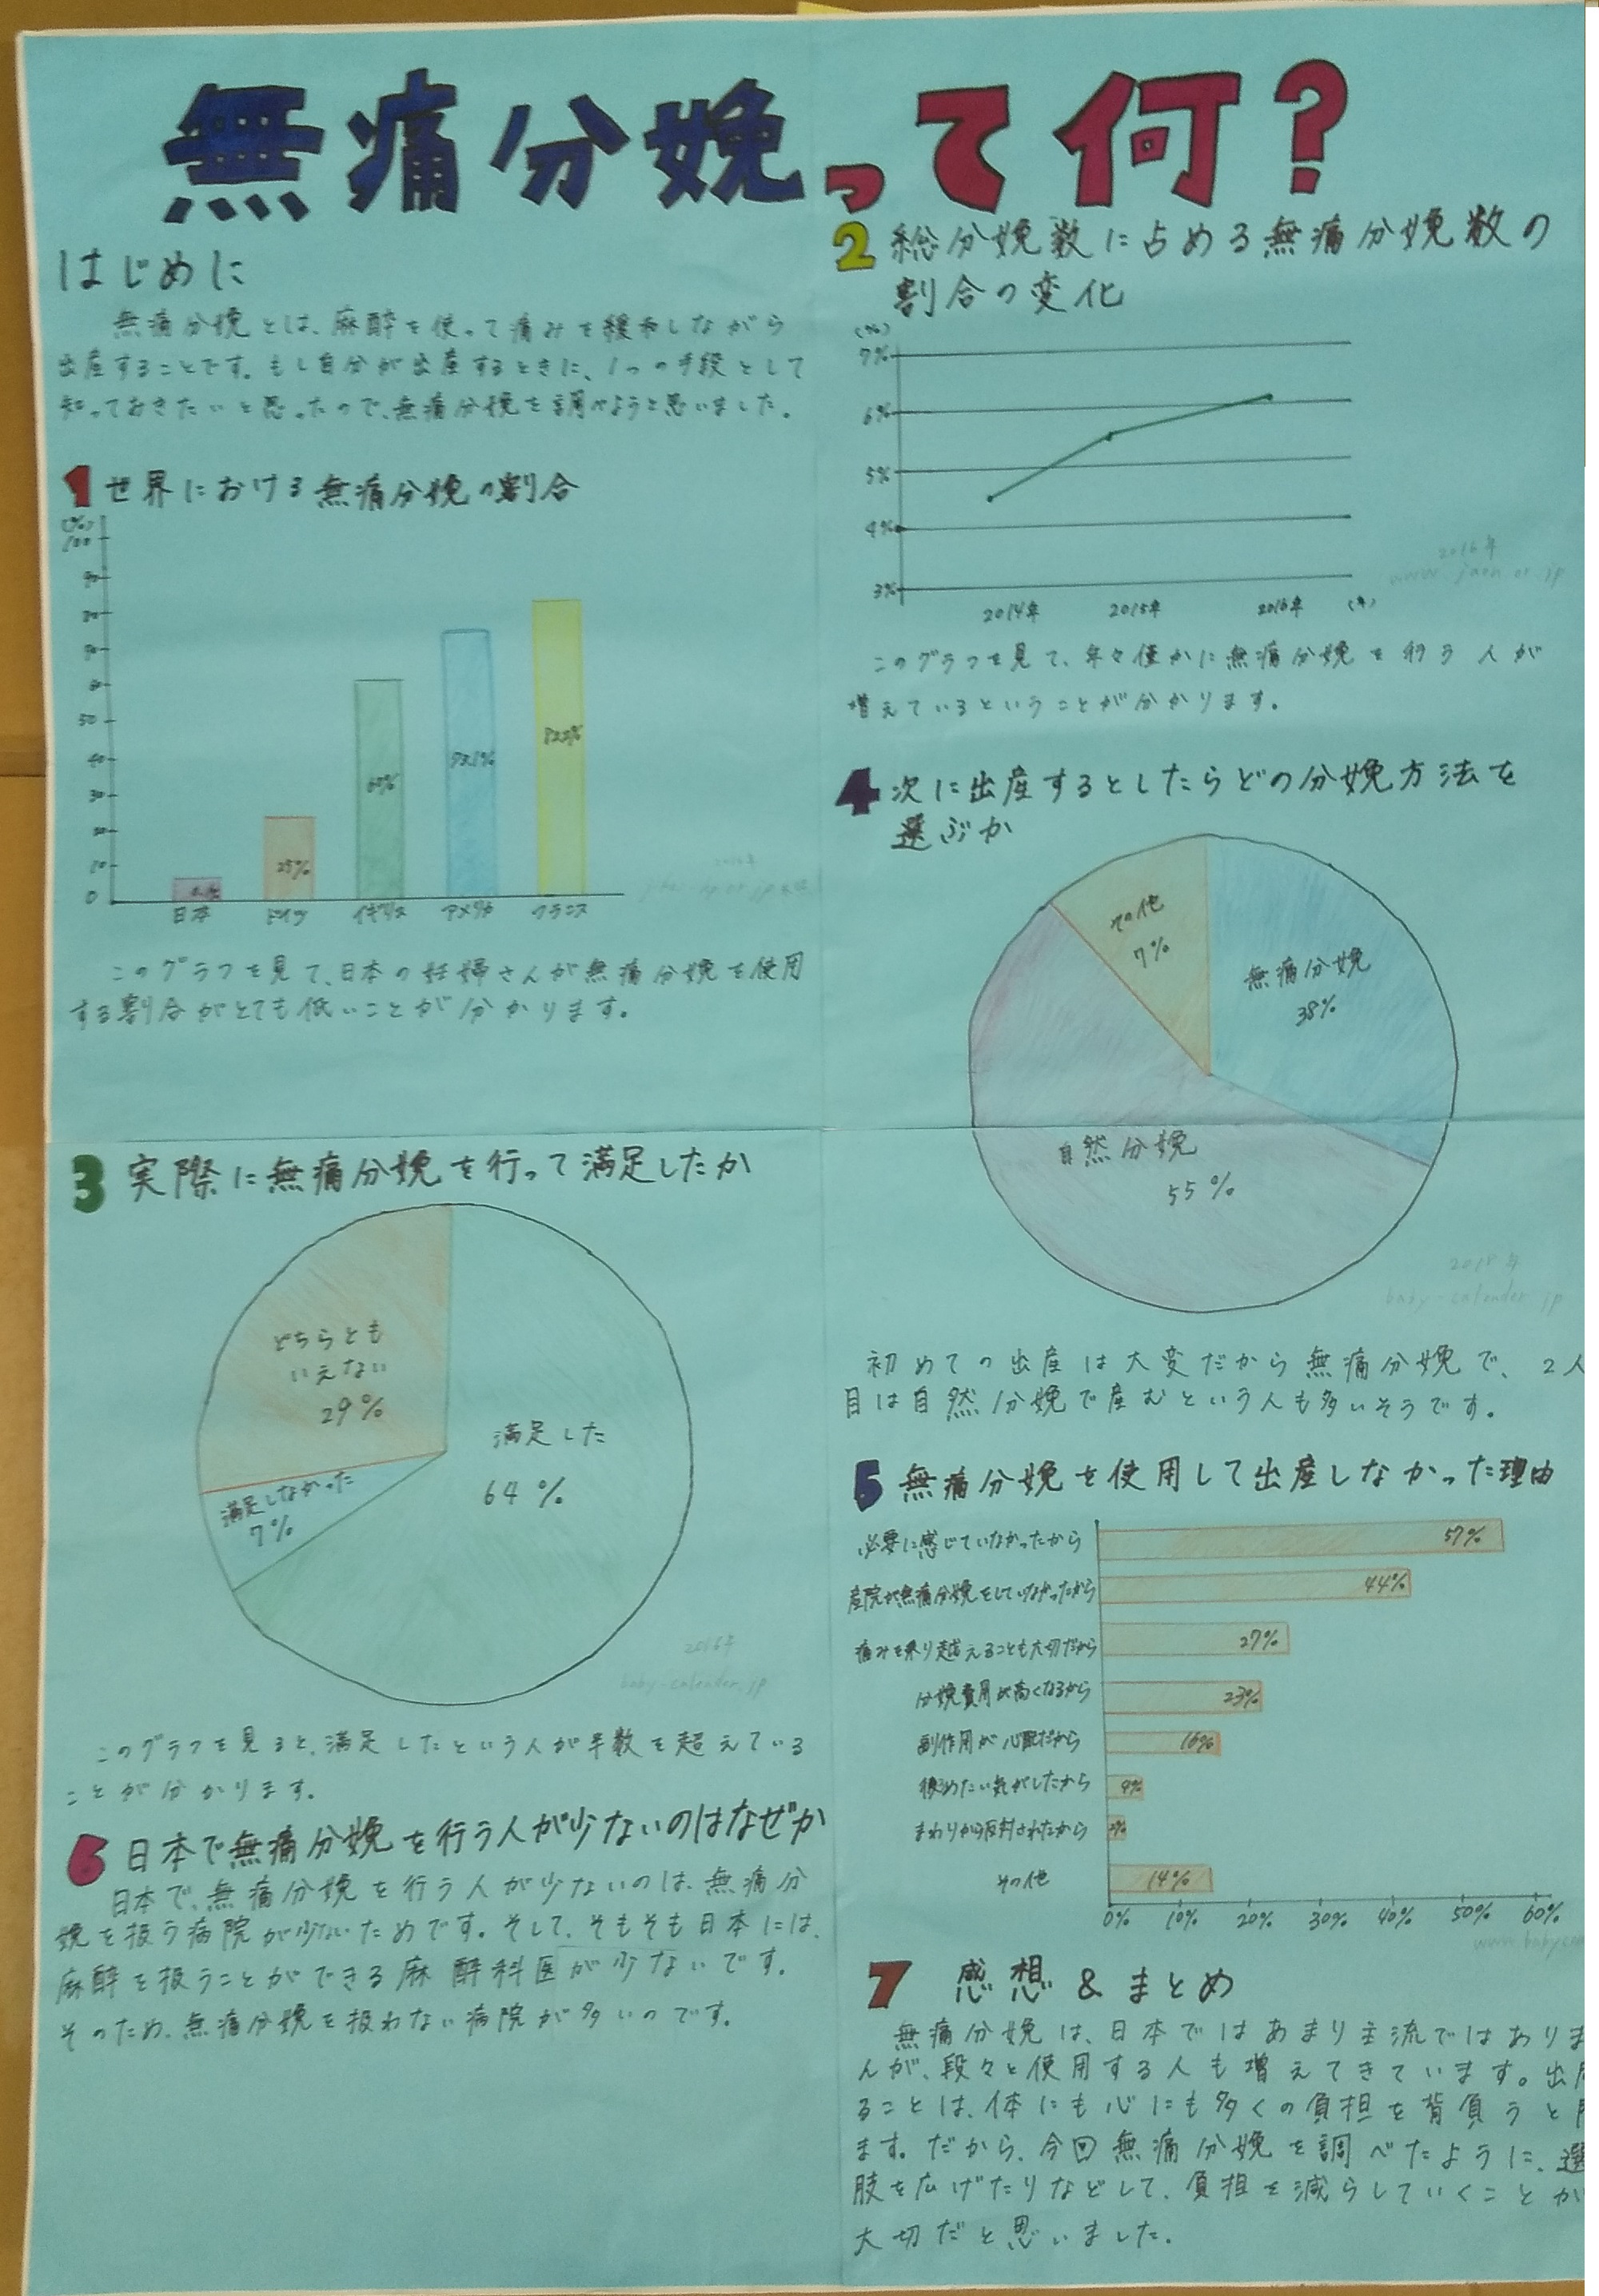 無痛分娩って何?
はじめに
無痛分娩とは、麻酔を使って痛みを緩和しながら
出産することです。もし自分が出産するときに、1つの手段として
知っておきたいと思ったので、無痛分娩を調べようと思いました。
1 世界における無痛分娩の割合
(%)
100
90
80
70
60
50
40
30
20
10
0
25%
60%
73.1%
82.2%
日本 ドイツ イギリス アメリカ フランス
このグラフを見て、日本の妊婦さんが無痛分娩を使用
する割合がとても低いことが分かります。
2 総分娩数に占める無痛分娩数の
割合の変化
(%)
7%
6%
5%
4%
3%
2014年 2015年 2016年 (年)
2016年
このグラフを見て、年々僅かに無痛分娩を行う人が
増えているということが分かります。
3 実際に無痛分娩を行って満足したか
どちらとも
いえない
29%
満足した
64%
満足しなかった
7%
2016年
baby-calender.jp
このグラフを見ると、満足したという人が半数を超えている
ことが分かります。
4 次に出産するとしたらどの分娩方法を
選ぶか
その他
7%
無痛分娩
38%
自然分娩
55%
2018年
baby-calender.jp
初めての出産は大変だから無痛分娩で、2人
目は自然分娩で産むという人も多いそうです。
5 無痛分娩を使用して出産しなかった理由
必要に感じていなかったから 57%
産院が無痛分娩をしていなかったから 44%
痛みを乗り越えることも大切だから 27%
分娩費用が高くなるから 23%
副作用が心配だから 16%
後ろめたい気がしたから
まわりから反対されたから
その他 14%
0% 10% 20% 30% 40% 50% 60%
6 日本で無痛分娩を行う人が少ないのはなぜか
日本で、無痛分娩を行う人が少ないのは、無痛分
娩を扱う病院が少ないためです。そして、そもそも日本には、
麻酔を扱うことができる麻酔科医が少ないです。
そのため、無痛分娩を扱わない病院が多いのです。
7 感想&まとめ
無痛分娩は、日本ではあまり主流ではありま
んが、段々と使用する人も増えてきています。出
ることは、体にも心にも多くの負担を背負うと
ます。だから、今回無痛分娩を調べたように、選
肢を広げたりなどして、負担を減らしていくことが
大切だと思いました。